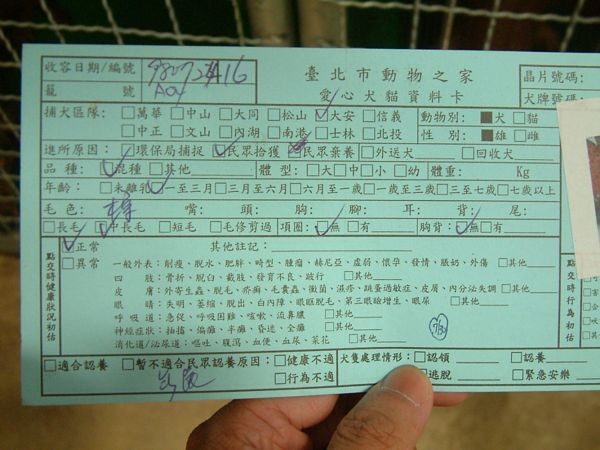 收容日期/編號 980724A16 臺北市動物之家 晶片號碼:
籠 號 A04 愛心犬貓資料卡 犬牌號碼:
捕犬區隊: □萬華 □中山 □大同 □松山 ☑大安 □信義 動物別: ■犬 □貓
□中正 □文山 □內湖 □南港 □士林 □北投 性 別: ■雄 □雌
進所原因: □環保局捕捉 ☑民眾拾獲 □民眾棄養 □外送犬 □回收犬
品 種: ☑混種 □其他 體 型: □大 □中 □小 □幼 體重: Kg
年齡: □未離乳 ☑一至三月 □三月至六月 □六月至一歲 □一歲至三歲 □三至七歲 □七歲以上
毛 色: 嘴: 頭: 胸: 腳: 耳: 背: 尾:
□長毛 ☑中長毛 □短毛 □毛修剪過 項圈: ☑無 □有 胸背: ☑無 □有
點交時健康狀況初估
☑正常 其他註記:
□異常 一般外表: 削瘦、脫水、肥胖、畸型、腫瘤、赫尼亞、虛弱、懷孕、發情、脹奶、外傷 □其他
四 肢: 骨折、脫臼、截肢、發育不良、跛行 □其他
皮 膚: 外寄生蟲、脫毛、疥癬、毛囊蟲、黴菌、濕疹、跳蚤過敏症、皮屑、內分泌失調 □其他
眼 睛: 失明、萎縮、脫出、白內障、眼眶脫毛、第三眼瞼增生、眼屎 □其他
呼 吸 道: 急促、呼吸困難、咳嗽、流鼻膿 □其他
神經症狀: 抽搐、偏癱、半癱、昏迷、全癱 □其他
消化道/泌尿道: 嘔吐、腹瀉、血便、血尿、菜花 □其他
點交時行為初估
□適合認養 □暫不適合民眾認養原因: □健康不適 犬隻處理情形: □認領 □安樂
□行為不適 □逃脫 □緊急安樂